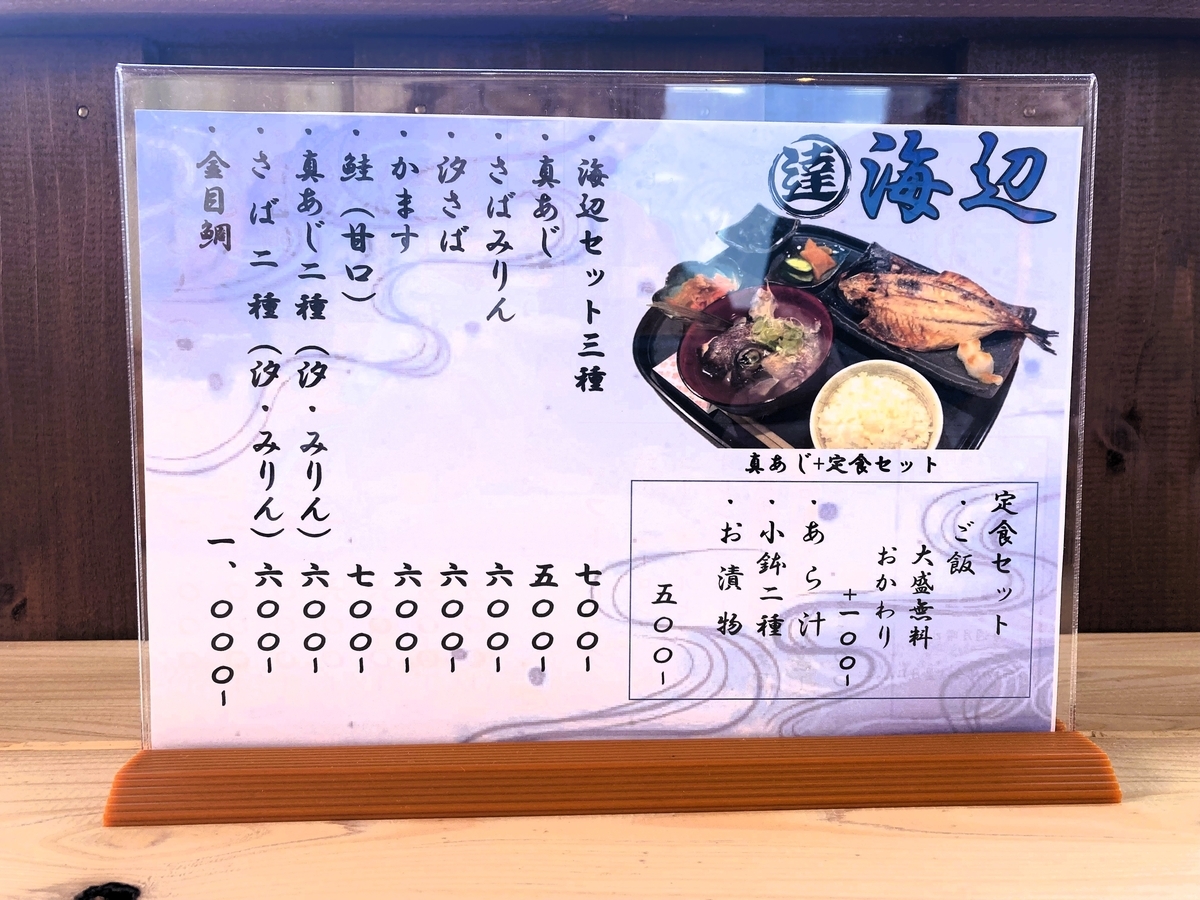 海辺 達
真あじ+定食セット
定食セット
・ご飯
大盛無料
おかわり
+一〇〇-
・あら汁
・小鉢二種
・お漬物
五〇〇-
・海辺セット三種 七〇〇-
・真あじ 五〇〇-
・さばみりん 六〇〇-
・汐さば 六〇〇-
・かます 六〇〇-
・鮭(甘口) 七〇〇-
・真あじ二種(汐・みりん) 六〇〇-
・さば二種(汐・みりん) 六〇〇-
・金目鯛 一、〇〇〇-